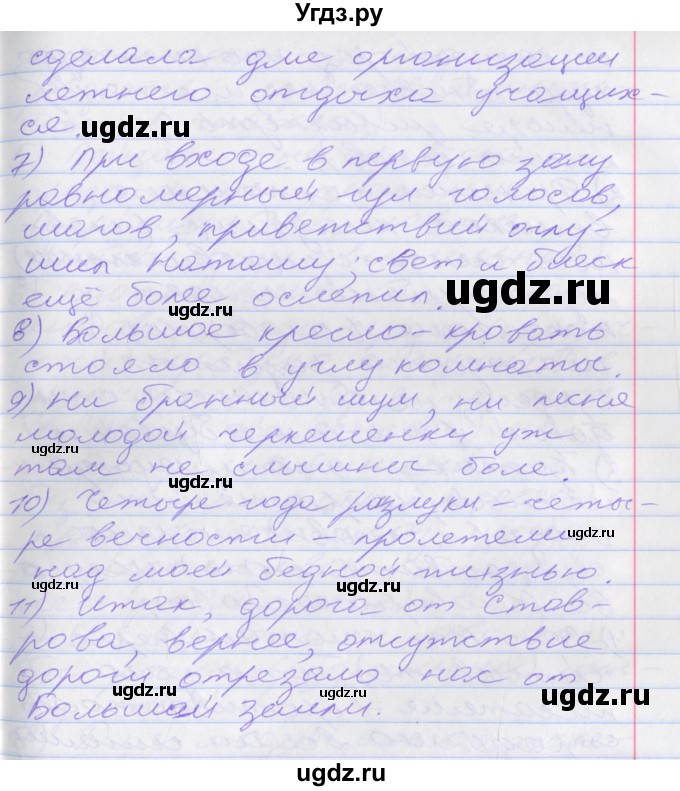 Угдз.ру
сделала для организации
летнего отдыха учащих-
ся.
ugdz.ru
ugdz.ru
7) При входе в первую залу
равномерный гул голосов,
шагов, приветствий оглу-
шил Наташу; свет и блеск
ещё более ослепил.
ugdz.ru
8) Большое кресло-кровать
стояло в углу комнаты.
9) Ни бранный шум, ни песня
молодой черкешенки уж
ugdz.ru
ugdz.ru
там не слышны боле.
ugdz.ru
10) Четыре года разлуки - четы-
ре вечности - пролетели
ugdz.ru
над моей бедной жизнью.
ugdz.ru
ugdz.ru
11) Итак, дорога от Став-
рова, вернее, отсутствие
дороги отрезало нас от
ugdz.ru
ugdz.ru
ugdz.ru
Большой земли.
ugdz.ru